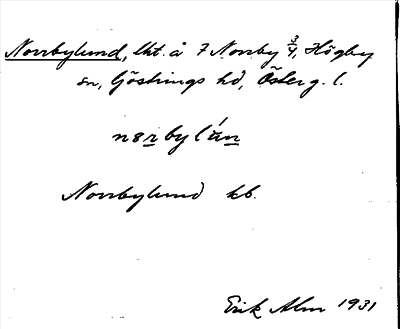 Norrbylund, lht. å 7 Norrby 3/4, Högby
sn, Göstrings hd, Österg. l.
Norrbylund kb.
Erik Alm 1931